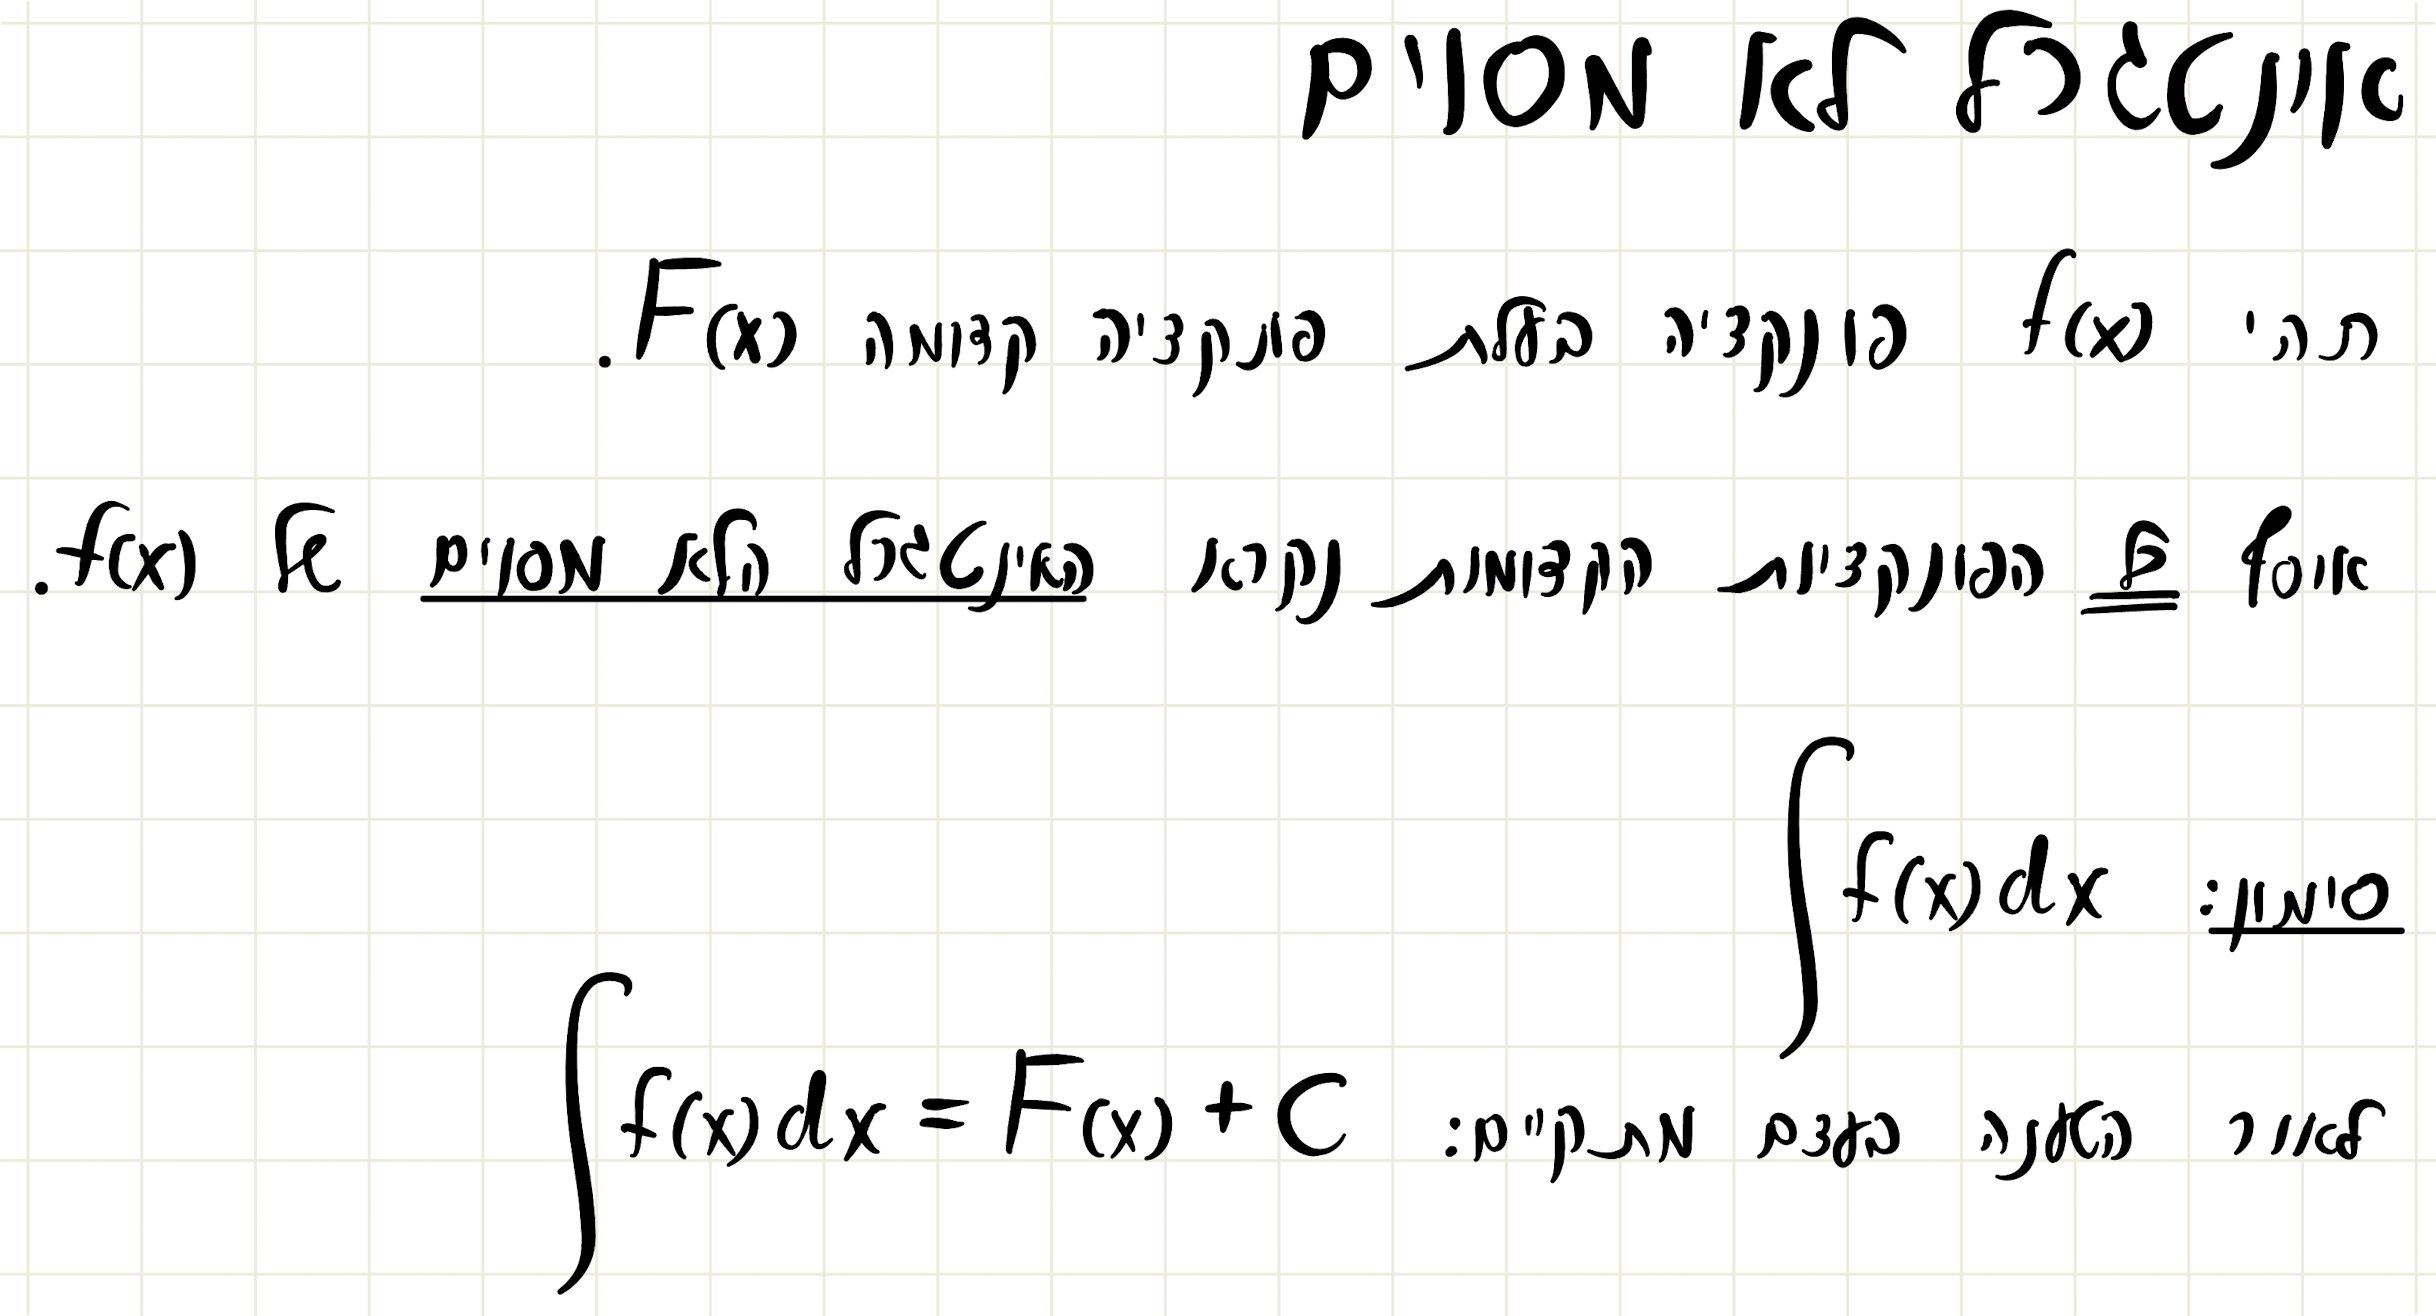 אינטגרל לא מסוים
תהי f(x) פונקציה בעלת פונקציה קדומה F(x).
אוסף כל הפונקציות הקדומות נקרא האינטגרל הלא מסוים של f(x).
סימון: ∫f(x)dx
לאור הטענה בעצם מתקיים: ∫f(x)dx = F(x) + C